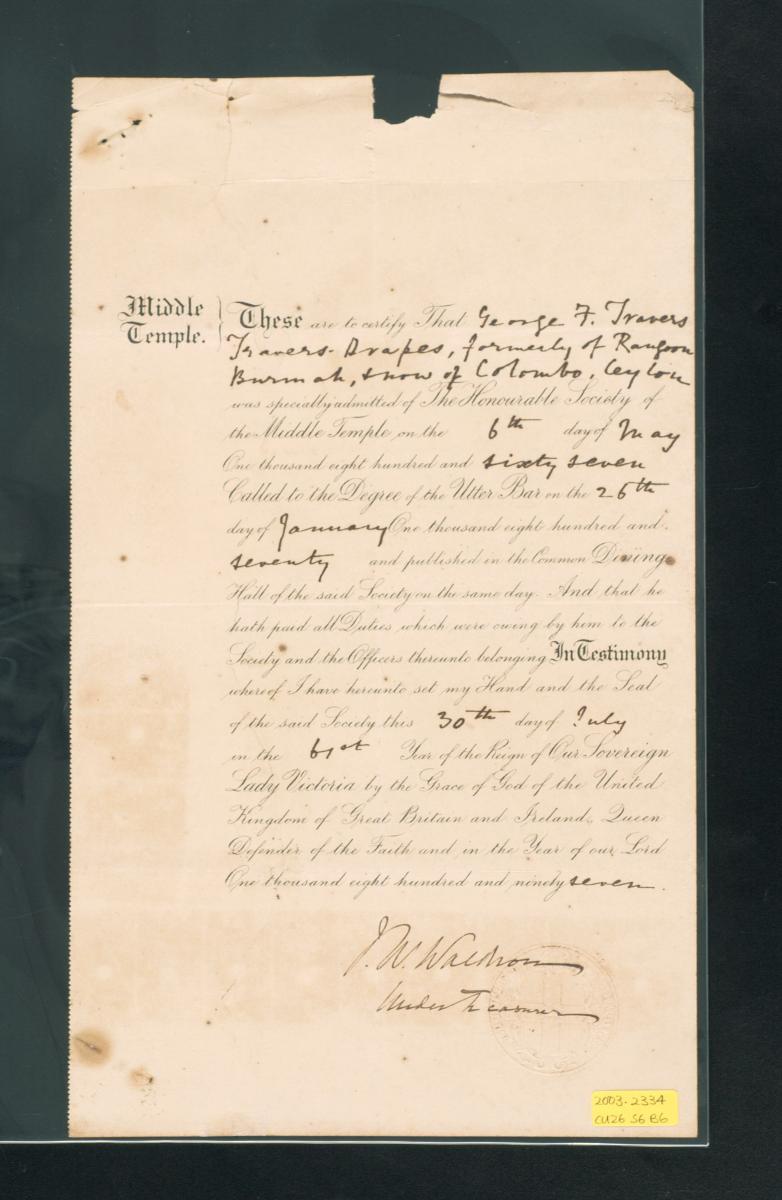 Middle
Temple.
These are to certify That George F. Travers
Travers-Drapes, formerly of Rangoon
Burmah, & now of Colombo, Ceylon
was specially admitted of The Honourable Society of
the Middle Temple on the 6th day of May
One thousand eight hundred and sixty seven
Called to the Degree of the Utter Bar on the 26th
day of January One thousand eight hundred and
seventy and published in the Common Dining
Hall of the said Society on the same day. And that he
hath paid all Duties which were owing by him to the
Society and the Officers thereunto belonging In Testimony
whereof I have hereunto set my Hand and the Seal
of the said Society this 30th day of July
in the 61st Year of the Reign of Our Sovereign
Lady Victoria by the Grace of God of the United
Kingdom of Great Britain and Ireland, Queen
Defender of the Faith and in the Year of our Lord
One thousand eight hundred and ninety seven.
J. W. Waldron
Under Treasurer
2003-2334
CU26 S6 B6